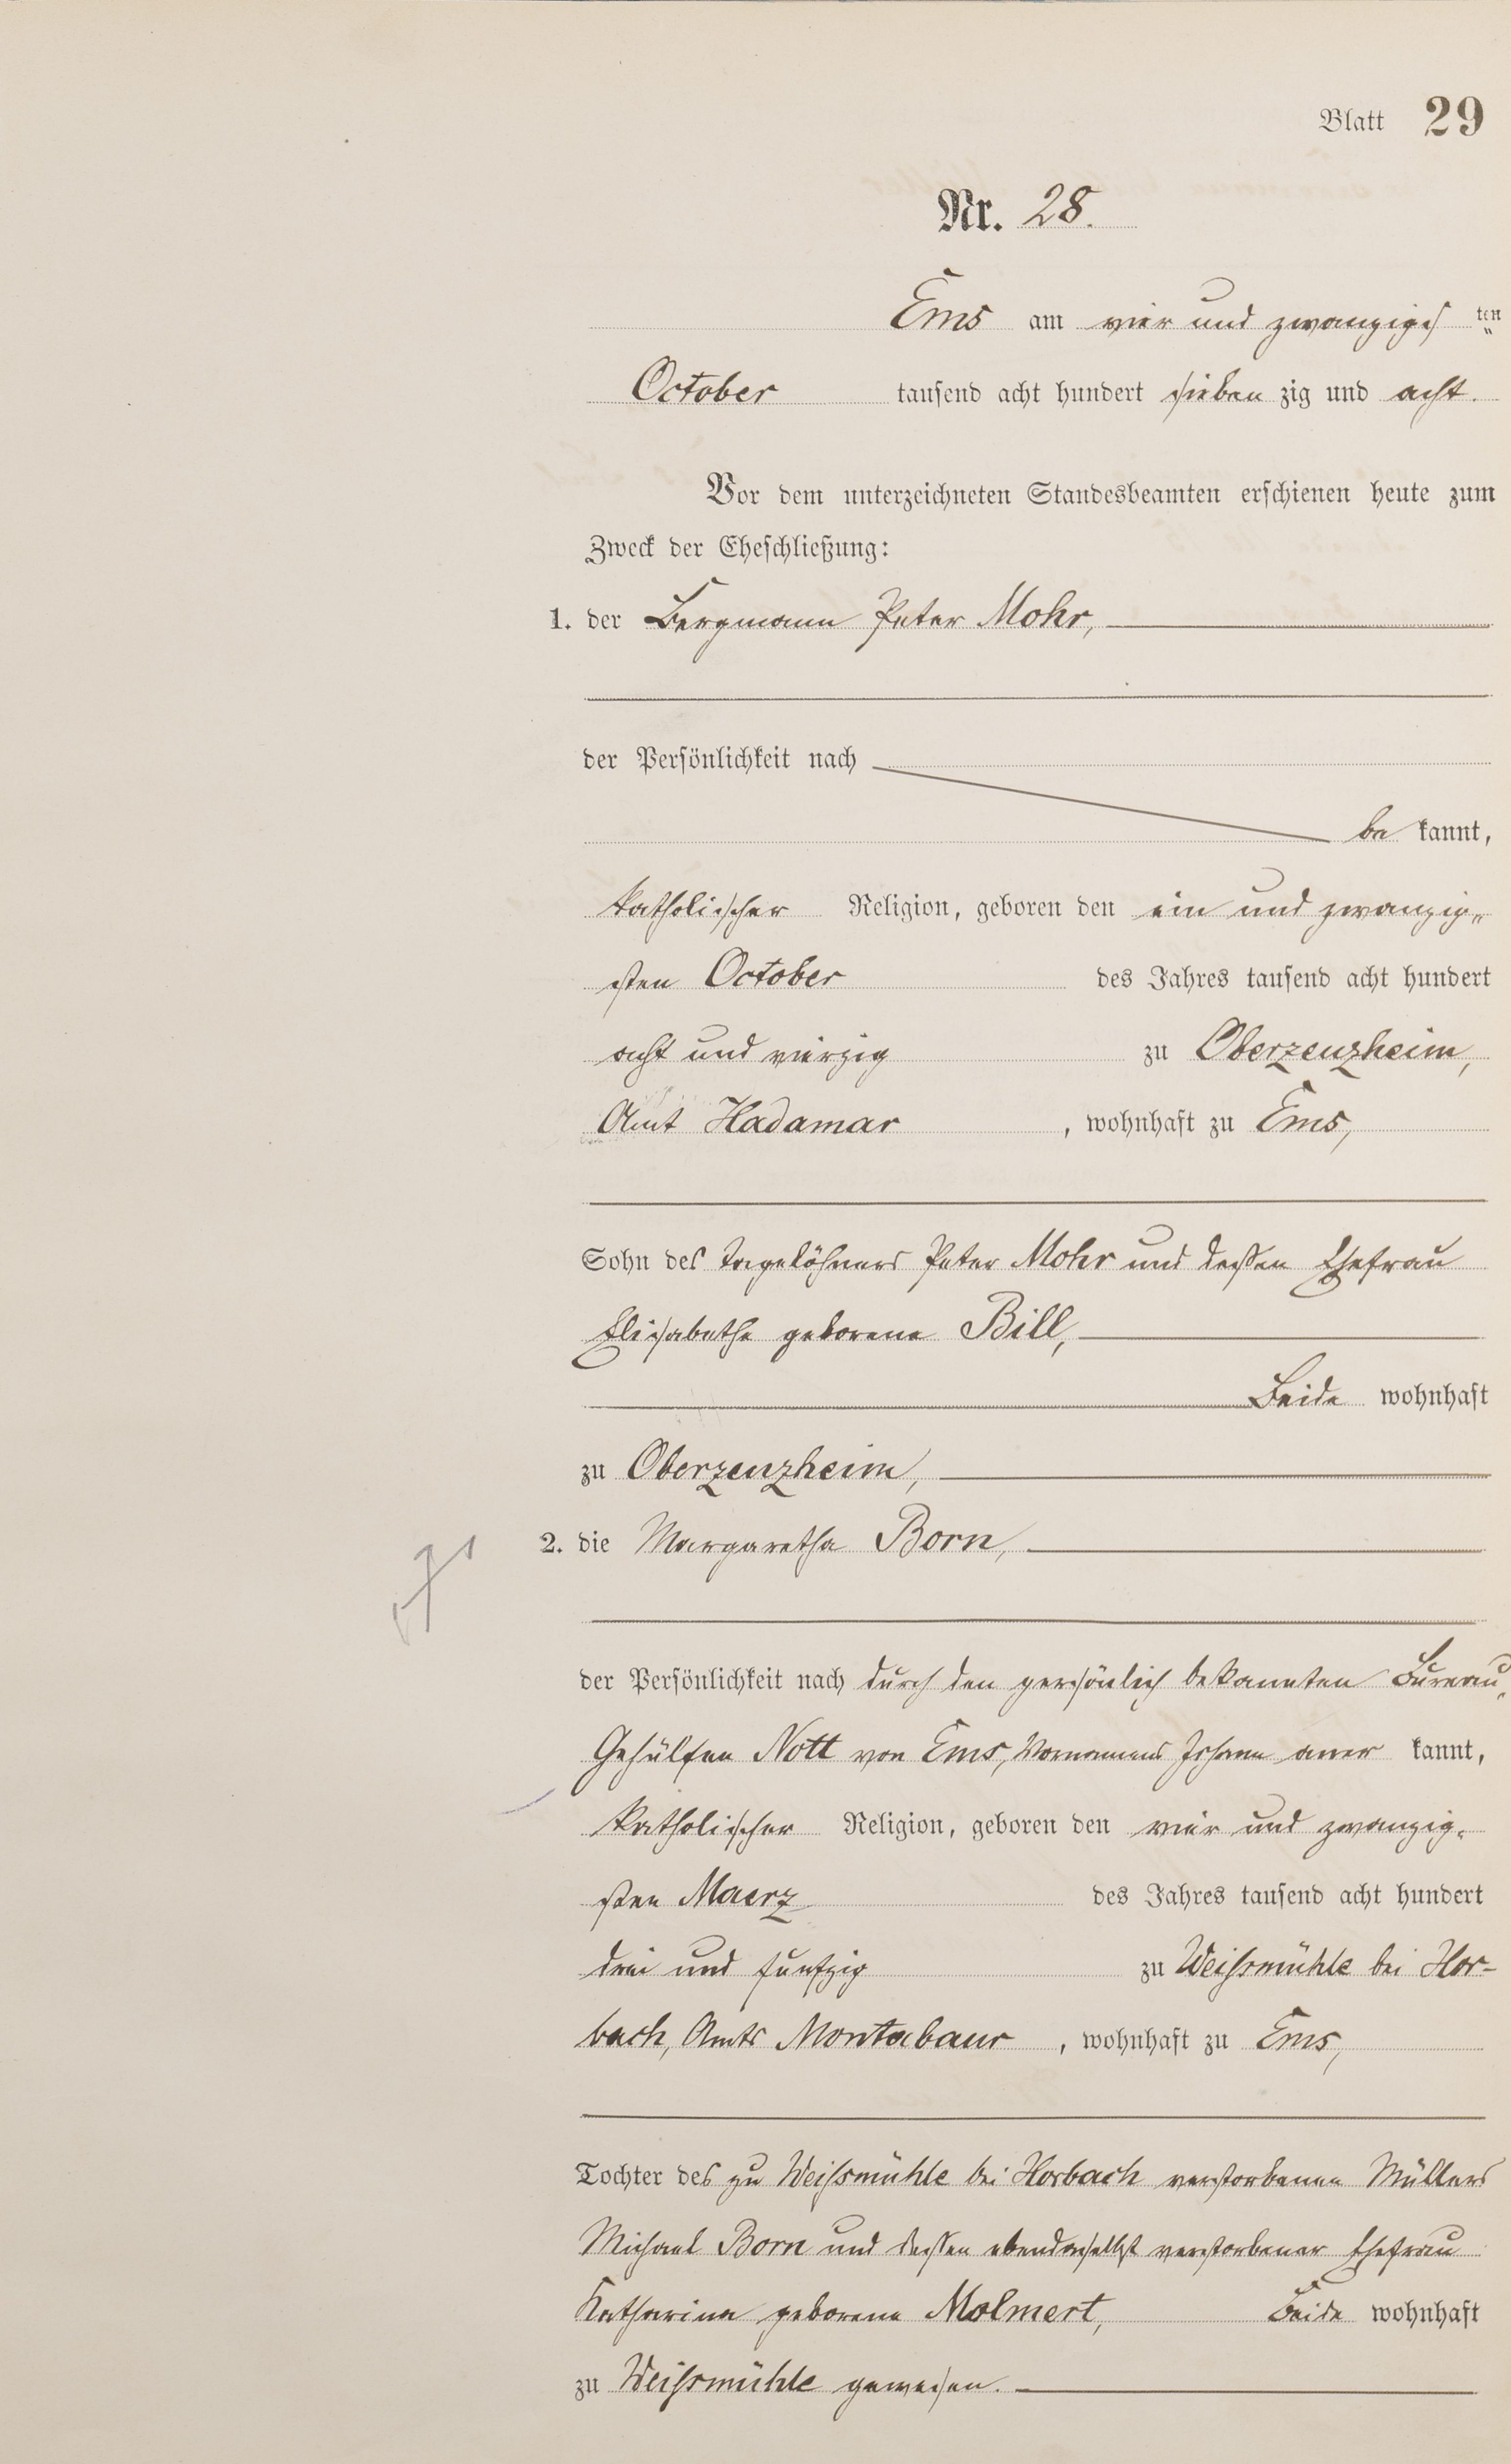 Blatt 29
Nr. 28.
Ems am vier und zwanzigs ten
October tausend acht hundert sieben zig und acht.
Vor dem unterzeichneten Standesbeamten erschienen heute zum
Zweck der Eheschließung:
1. der Bergmann Peter Mohr,
der Persönlichkeit nach
be kannt,
katholischer Religion, geboren den ein und zwanzig„
sten October des Jahres tausend acht hundert
acht und vierzig zu Oberzeuzheim,
Amt Hadamar , wohnhaft zu Ems,
Sohn des Tagelöhners Peter Mohr und dessen Ehefrau
Elisabethe geborene Bill,
Beide wohnhaft
zu Oberzeuzheim,
2. die Margaretha Born,
der Persönlichkeit nach durch den persönlich bekannten Bureau„
Gehülfen Nott von Ems, Vornamens Johann aner kannt,
katholischer Religion, geboren den vier und zwanzig„
sten Maerz des Jahres tausend acht hundert
drei und fünfzig zu Weißmühle bei Hor-
bach, Amts Montabaur , wohnhaft zu Ems,
Tochter des zu Weißmühle bei Horbach verstorbenen Müllers
Michael Born und dessen ebendaselbst verstorbener Ehefrau
Katharina geborene Molmert, Beide wohnhaft
zu Weißmühle gewesen.